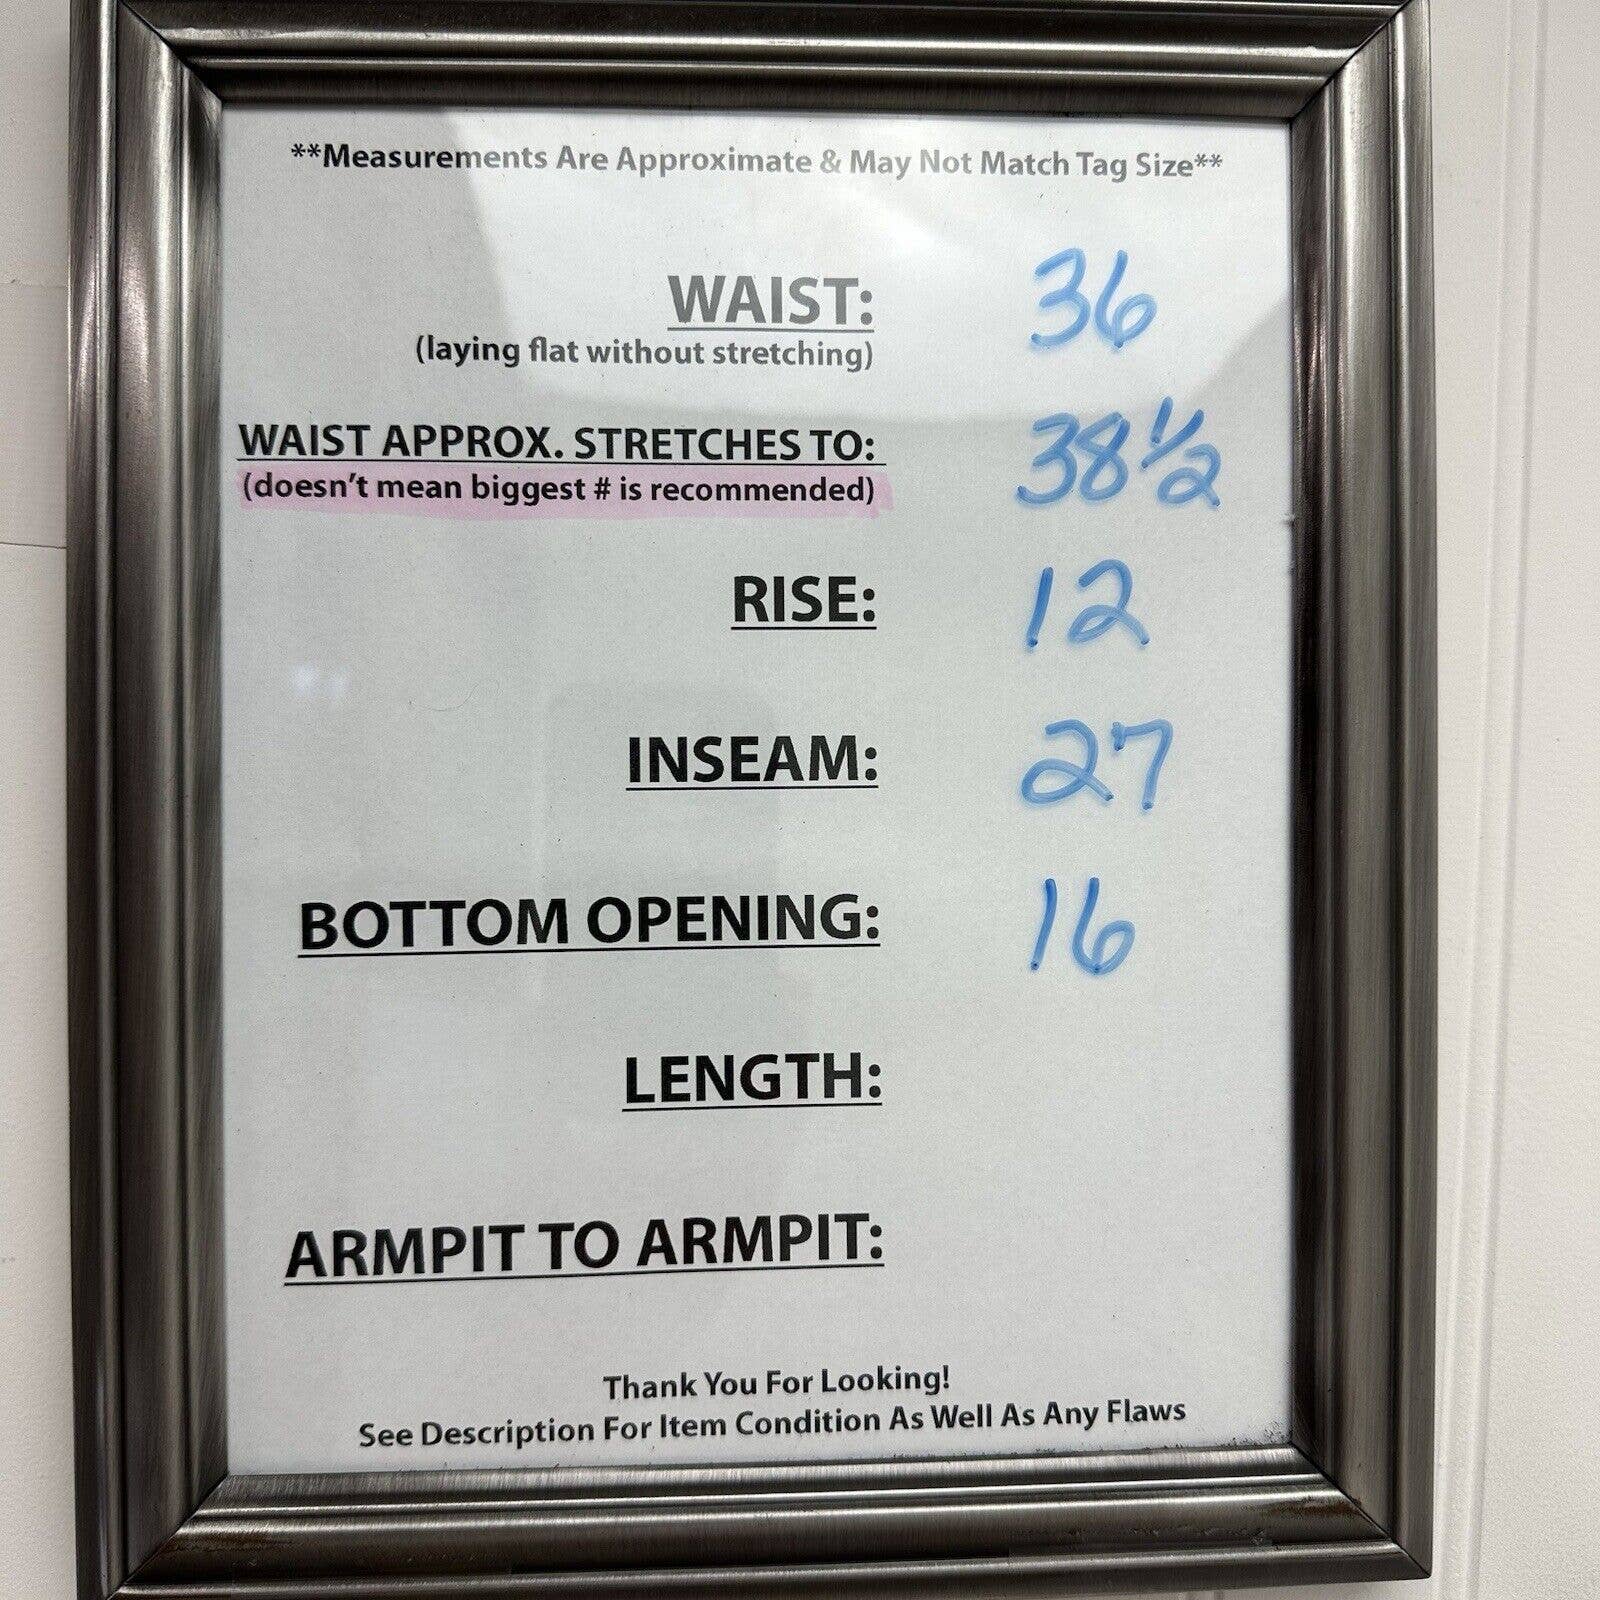 **Measurements Are Approximate & May Not Match Tag Size**
WAIST: 36
(laying flat without stretching)
WAIST APPROX. STRETCHES TO: 38 1/2
(doesn't mean biggest # is recommended)
RISE: 12
INSEAM: 27
BOTTOM OPENING: 16
LENGTH:
ARMPIT TO ARMPIT:
Thank You For Looking!
See Description For Item Condition As Well As Any Flaws